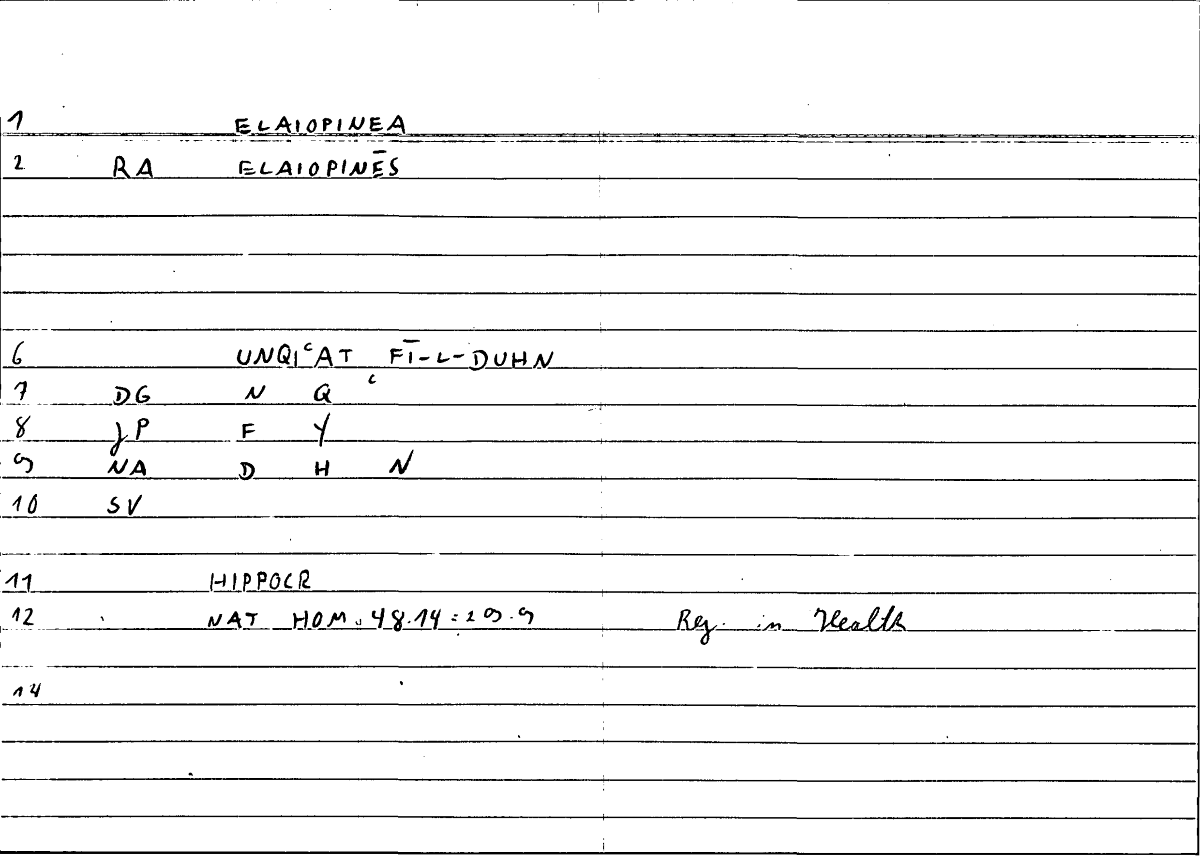 1 ELAIOPINEA
2 RA ELAIOPINĒS
6 UNQIᶜAT FĪ-L-DUHN
7 DG N Q ᶜ
8 JP F Y
9 NA D H N
10 SV
11 HIPPOCR
12 NAT HOM. 48.14 = 29.9 Reg. in Health
14